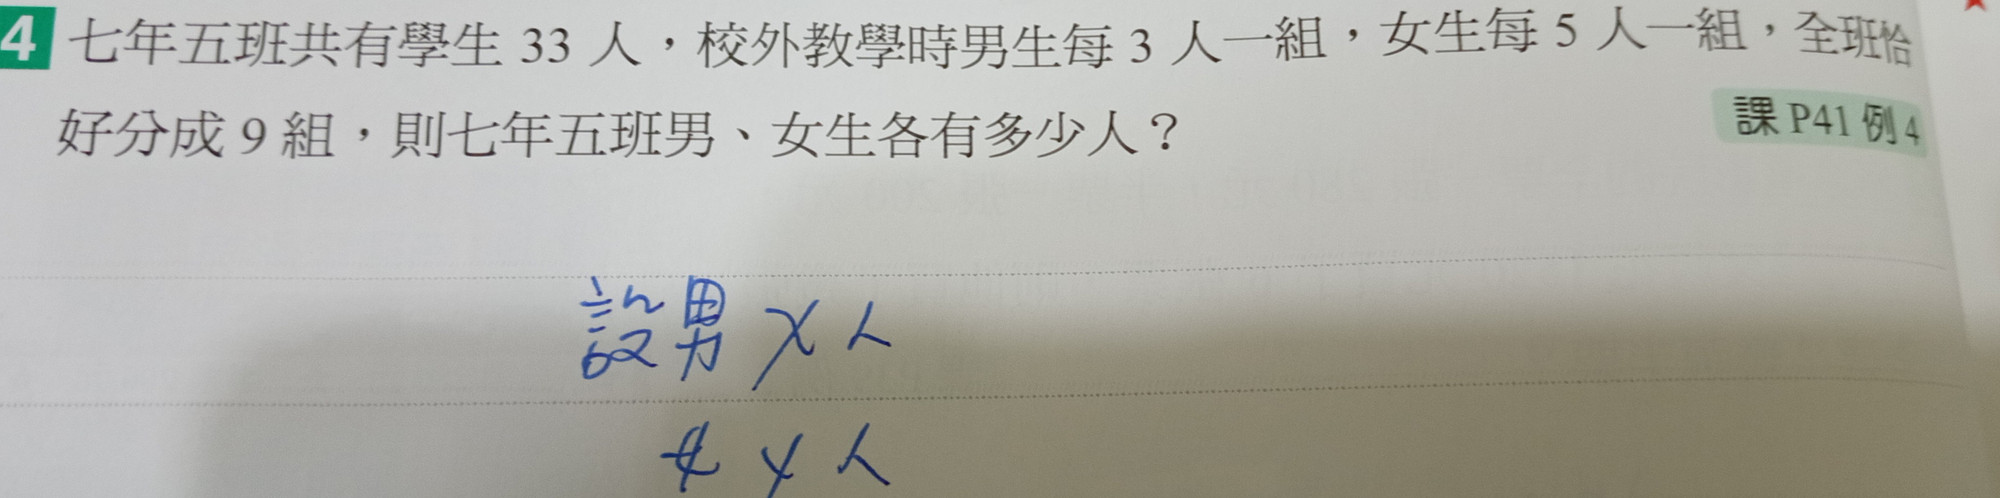 4 七年五班共有學生 33 人，校外教學時男生每 3 人一組，女生每 5 人一組，全班恰
好分成 9 組，則七年五班男、女生各有多少人？
課 P41 例 4
設男 x 人
女 y 人